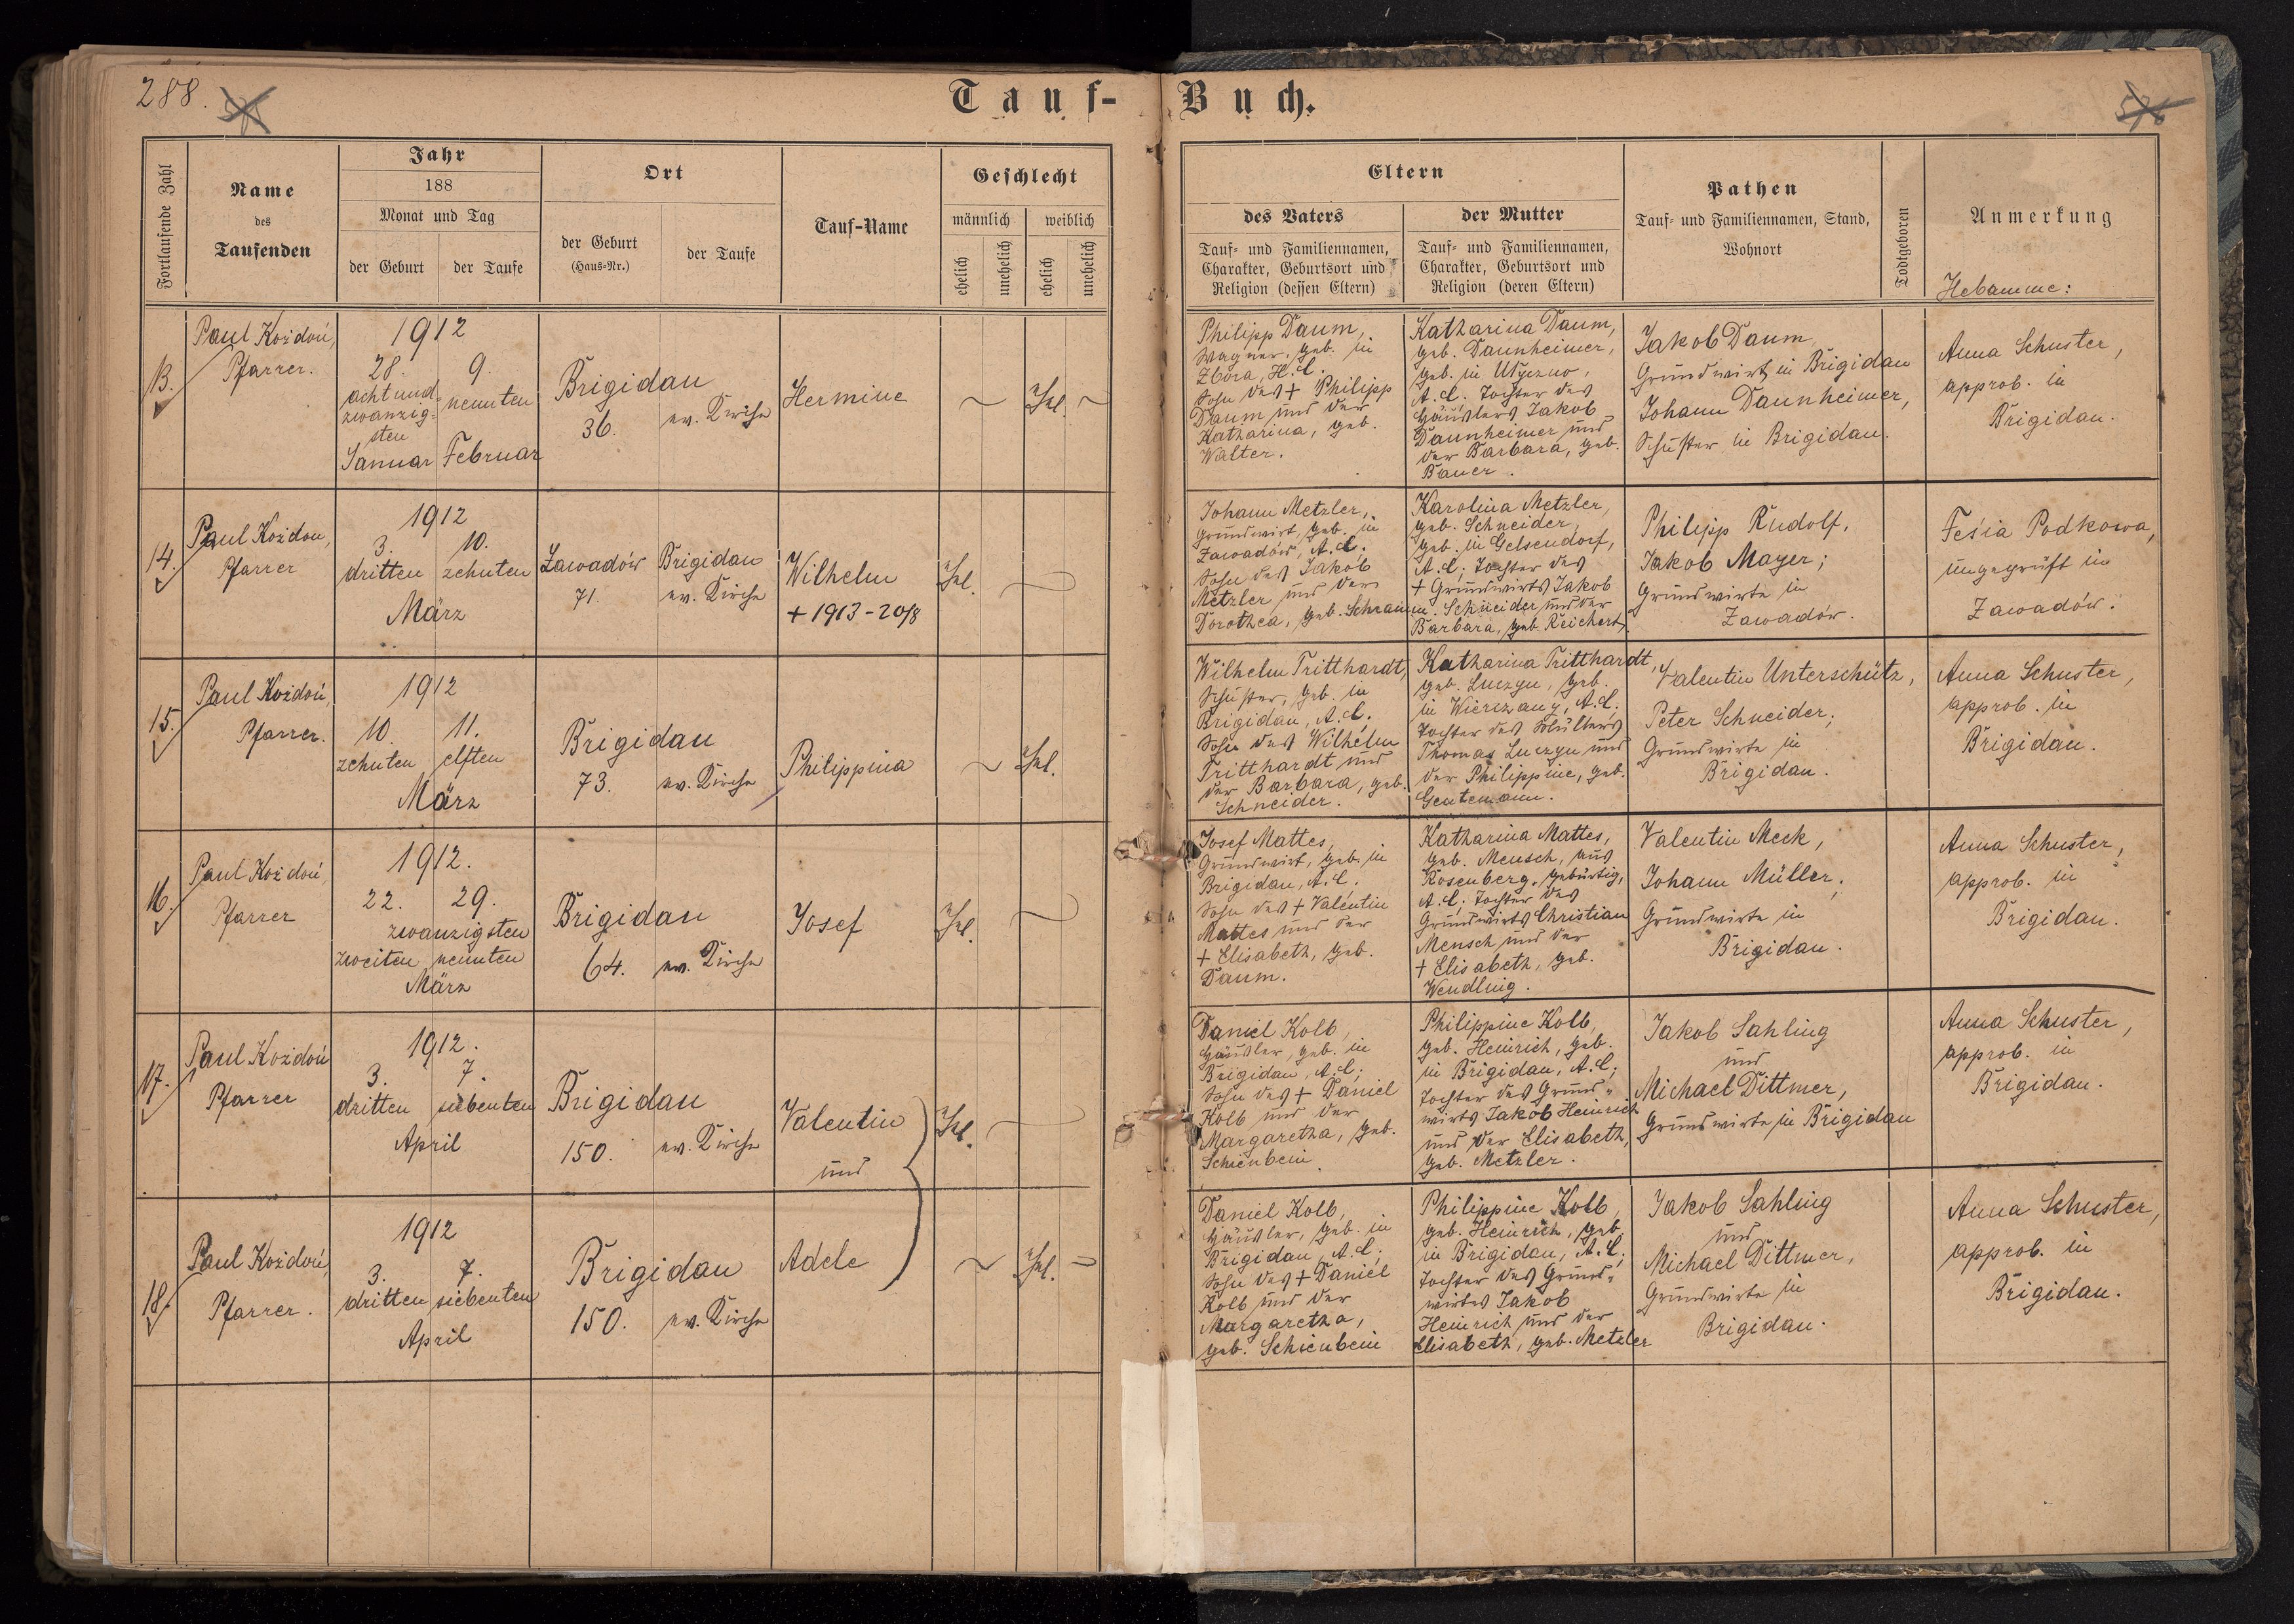 288.
Tauf-Buch.
Fortlaufende Zahl
Name
des
Taufenden
Jahr
188
Monat und Tag
der Geburt
der Taufe
Ort
der Geburt
(Haus-Nr.)
der Taufe
Tauf-Name
Geschlecht
männlich
weiblich
ehelich
unehelich
ehelich
unehelich
Eltern
des Vaters
Tauf- und Familiennamen,
Charakter, Geburtsort und
Religion (dessen Eltern)
der Mutter
Tauf- und Familiennamen,
Charakter, Geburtsort und
Religion (deren Eltern)
Pathen
Tauf- und Familiennamen, Stand,
Wohnort
Todtgeboren
Anmerkung
Hebamme:
13.
Paul Kożdoń,
Pfarrer.
1912
28.
acht und
zwanzig-
sten
Januar
9.
neunten
Februar
Brigidau
36.
ev. Kirche
Hermine
Ehl.
Philipp Daum,
Wagner, geb. in
Zbora, H.C.
Sohn des + Philipp
Daum und der
Katharina, geb.
Walter.
Katharina Daum,
geb. Dannheimer,
geb. in
A.C. Tochter des
Häuslers Jakob
Dannheimer und
der Barbara, geb.
Bauer.
Jakob Daum,
Grundwirt in Brigidau
Johann Dannheimer,
Schuster in Brigidau.
Anna Schuster,
approb. in
Brigidau.
14.
Paul Kożdoń,
Pfarrer
1912
3.
dritten
10.
zehnten
März
Zawadów
71.
Brigidau
ev. Kirche
Wilhelm
+ 1913-20/8
Ehl.
Johann Metzler,
Grundwirt, geb. in
Zawadów, A.C.
Sohn des Jakob
Metzler und der
Dorothea, geb. Schramm.
Karolina Metzler,
geb. Schneider,
geb. in Gelsendorf,
A.C; Tochter des
+ Grundwirts Jakob
Schneider und der
Barbara, geb. Reichert.
Philipp Rudolf,
Jakob Mayer;
Grundwirte in
Zawadów.
Feśia Podkowa,
ungeprüft in
Zawadów.
15.
Paul Kożdoń,
Pfarrer.
1912
10.
zehnten
11.
elften
März
Brigidau
73.
ev. Kirche
Philippina
Ehl.
Wilhelm Tritthardt,
Schuster, geb. in
Brigidau, A.C.
Sohn des Wilhelm
Tritthardt und
der Barbara, geb.
Schneider.
Katharina Tritthardt,
geb. Luczyn, geb.
in Wierczany, A.C.
Tochter des
Thomas Luczyn und
der Philippine, geb.
Gentemann.
Valentin Unterschütz,
Peter Schneider;
Grundwirte in
Brigidau.
Anna Schuster,
approb. in
Brigidau.
16.
Paul Kożdoń,
Pfarrer
1912.
22.
29.
zwanzigsten
zweiten
neunten
März
Brigidau
64.
ev. Kirche
Josef
Ehl.
Josef Mattes,
Grundwirt, geb. in
Brigidau, A.C.
Sohn des + Valentin
Mattes und der
+ Elisabeth, geb.
Daum.
Katharina Mattes,
geb. Mensch, aus
Rosenberg, gebürtig,
A.C; Tochter des
Grundwirts Christian
Mensch und der
+ Elisabeth, geb.
Wendling.
Valentin Meck,
Johann Müller;
Grundwirte in
Brigidau.
Anna Schuster,
approb. in
Brigidau.
17.
Paul Kożdoń
Pfarrer
1912.
3.
dritten
7.
siebenten
April
Brigidau
150.
ev. Kirche
Valentin
und
Ehl.
Daniel Kolb,
Häusler, geb. in
Brigidau, A.C;
Sohn des + Daniel
Kolb und der
Margaretha, geb.
Schienbein.
Philippine Kolb,
geb. Heinrich, geb.
in Brigidau, A.C;
Tochter des Grund-
wirts Jakob Heinrich
und der Elisabeth,
geb. Metzler.
Jakob Sahling
und
Michael Dittmer,
Grundwirte in Brigidau
Anna Schuster,
approb. in
Brigidau.
18.
Paul Kożdoń,
Pfarrer.
1912
3.
dritten
7.
siebenten
April
Brigidau
150.
ev. Kirche
Adele
Ehl.
Daniel Kolb,
Häusler, geb. in
Brigidau, A.C;
Sohn des + Daniel
Kolb und der
Margaretha,
geb. Schienbein
Philippine Kolb,
geb. Heinrich, geb.
in Brigidau, A.C;
Tochter des Grund-
wirtes Jakob
Heinrich und der
Elisabeth, geb. Metzler
Jakob Sahling
und
Michael Dittmer,
Grundwirte in
Brigidau.
Anna Schuster,
approb. in
Brigidau.